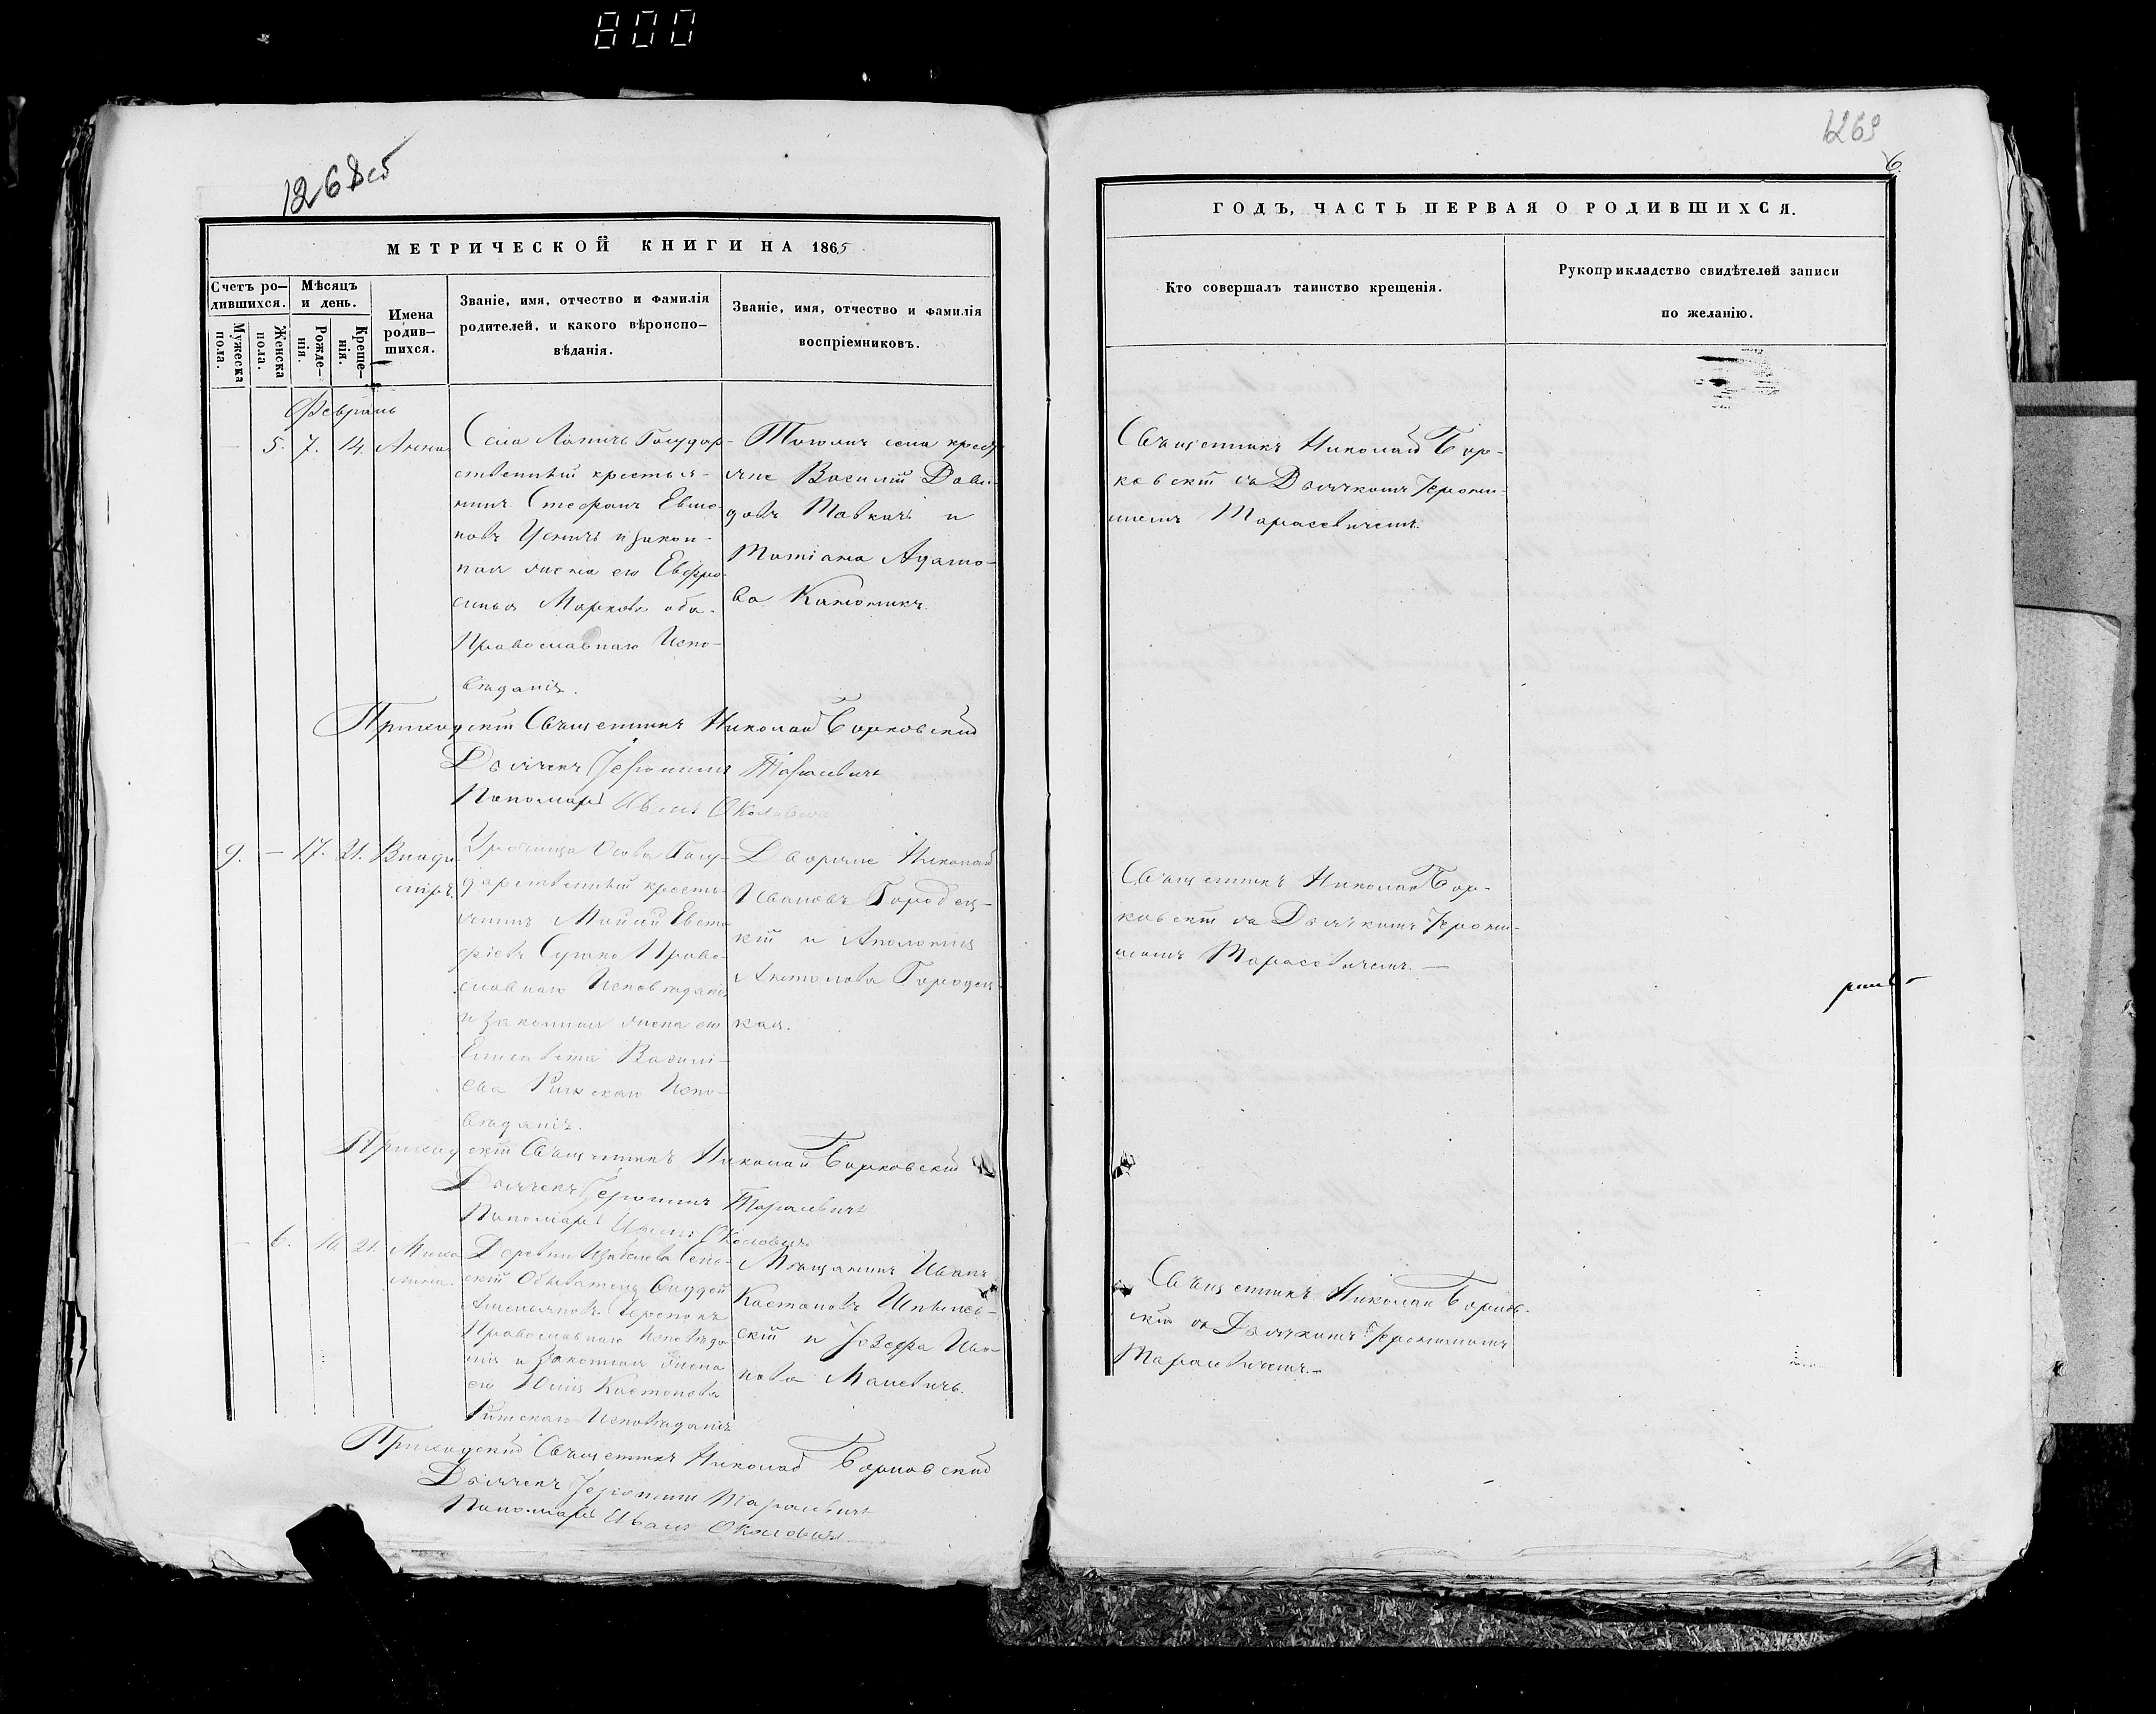 800
1268 об
МЕТРИЧЕСКОЙ КНИГИ НА 1865
Счетъ ро–дившихся.
Мѣсяцъ и день.
Имена родив–шихся.
Званіе, имя, отчество и фамилія родителей, и какого вѣроиспо–вѣданія.
Званіе, имя, отчество и фамилія воспріемниковъ.
Мужеска пола.
Женска пола.
Рожде–нія.
Креще–нія.
Февраль
— 5. 7. 14. Анна
Села Лапичъ Государ–
ственный крестья–
нинъ Стефанъ
и закон–
ная жена его Евфро–
синья Маркова оба
Православнаго Испо–
вѣданія.
Тогожъ села кресть
яне Василій Дави–
довъ и
Татіана Адамо–
ва
Приходскій Священникъ Николай Борковскій
Дьячекъ Іеронимъ Тарасевичъ
Пономарь Иванъ Околовичъ
9. — 17. 21. Влади
миръ.
Урочища Госу–
дарственный кресть–
янинъ Моисей Евста
фіевъ Право–
славнаго Исповѣданія
и законная жена его
Елисавета Василі–
ева Римскаго Испо–
вѣданія.
Дворяне Николай
Ивановъ Городец–
кій и Аполонія
Антонова Городец
кая.
Приходскій Священникъ Николай Борковскій
Дьячекъ Іеронимъ Тарасевичъ
Пономарь Иванъ Околовичъ
— 6. 16. 21. Миха
лина.
Деревни
скій
Православнаго Исповѣда
нія и Законная жена
его Юлія
Римскаго Исповѣданія
Мѣщанинъ Иванъ
скій и Іозефа Ива–
нова
Приходскій Священникъ Николай Борковскій
Дьячекъ Іеронимъ Тарасевичъ
Пономарь Иванъ Околовичъ
1269
6.
ГОДЪ, ЧАСТЬ ПЕРВАЯ О РОДИВШИХСЯ.
Кто совершалъ таинство крещенія.
Рукоприкладство свидѣтелей записи
по желанію.
Священникъ Николай Бор–
ковскій съ Дьячкомъ Іерони–
момъ Тарасевичемъ.
Священникъ Николай Бор–
ковскій съ Дьячкомъ Іерони–
момъ Тарасевичемъ. —
Священникъ Николай Борков–
скій съ Дьячкомъ Іеронимомъ
Тарасевичемъ. —